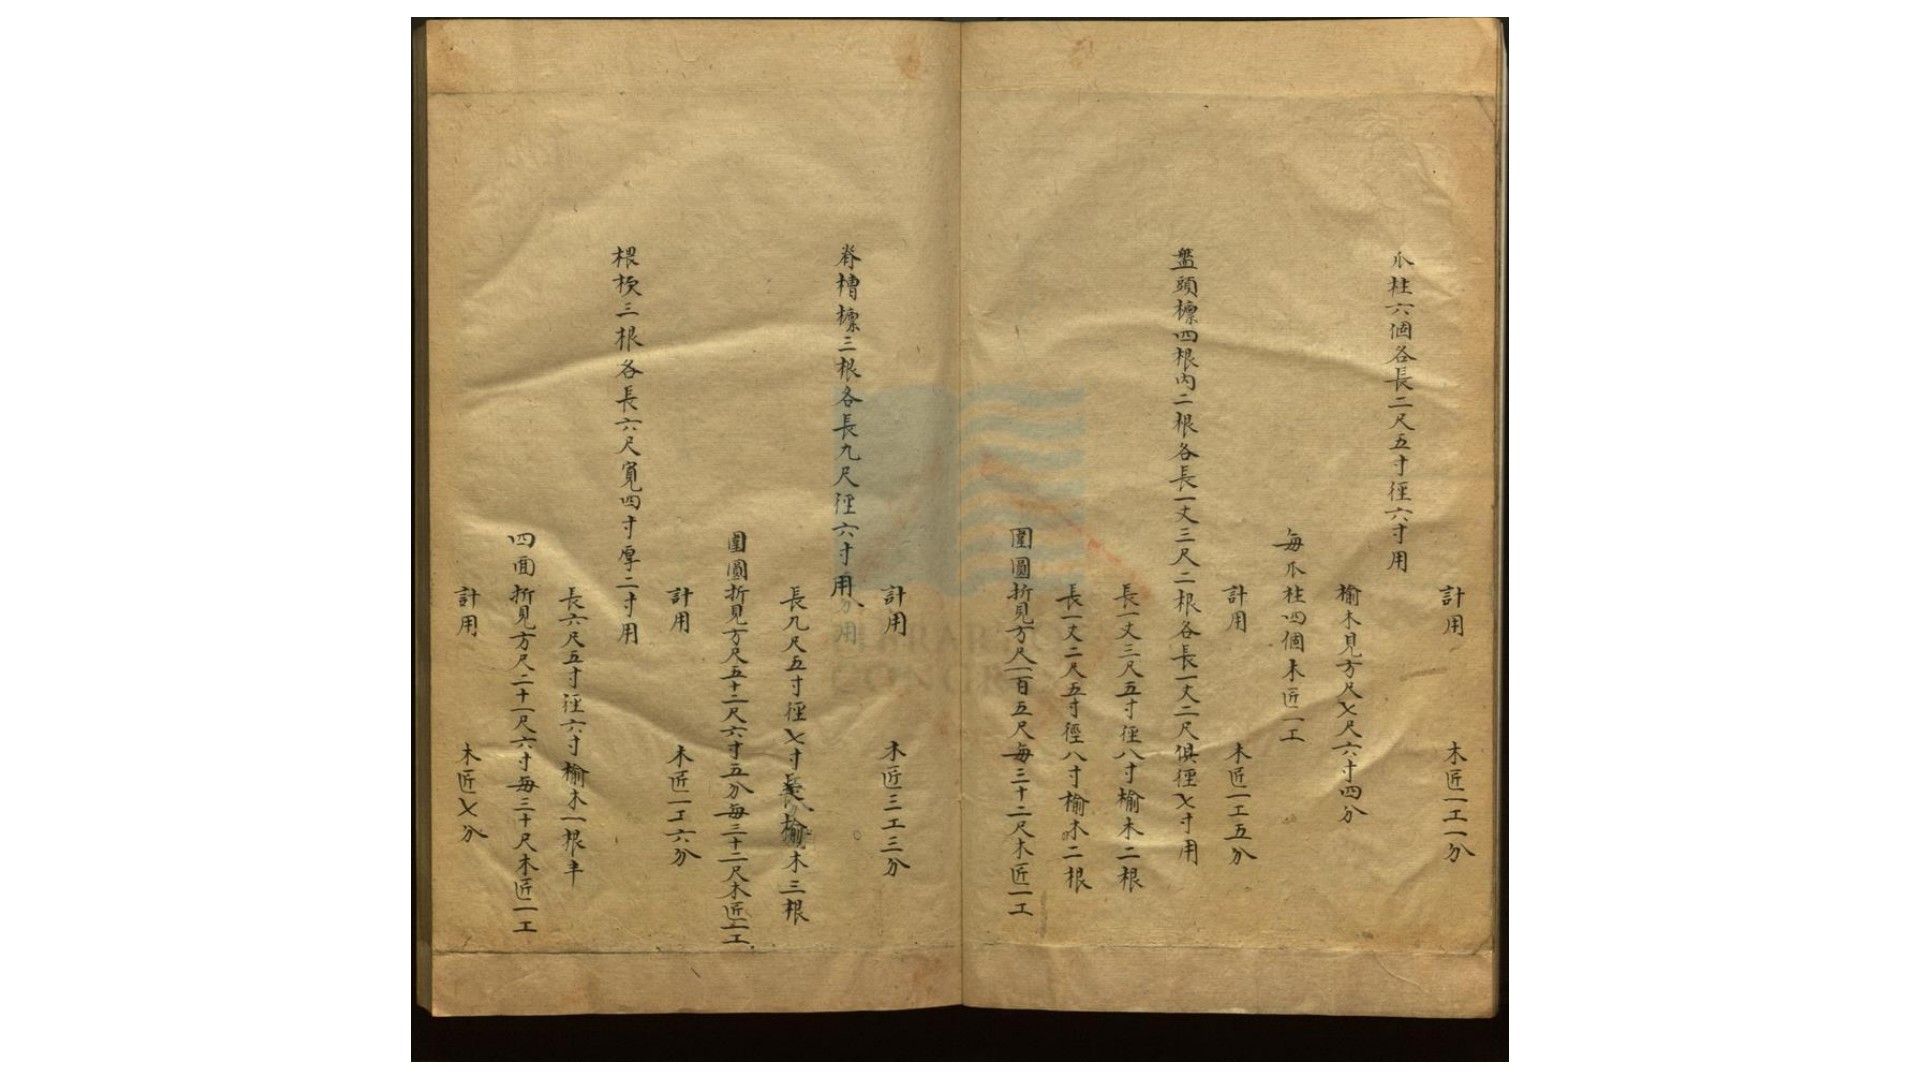 計用 木匠一工一分
爪柱六個各長二尺五寸徑六寸用
榆木見方尺七尺六寸四分
每爪柱四個木匠一工
計用 木匠一工五分
盤頭檁四根内二根各長一丈三尺二根各長一丈二尺俱徑七寸用
長一丈三尺五寸徑八寸榆木二根
長一丈二尺五寸徑八寸榆木二根
圍圓折見方尺一百五尺每三十二尺木匠一工
計用 木匠三工三分
脊槽檁三根各長九尺徑六寸用
長九尺五寸徑七寸榆木三根
圍圓折見方尺五十二尺六寸五分每三十二尺木匠一工
計用 木匠一工六分
三根各長六尺寬四寸厚二寸用
長六尺五寸徑六寸榆木一根半
四面折見方尺二十一尺六寸每三十尺木匠一工
計用 木匠七分